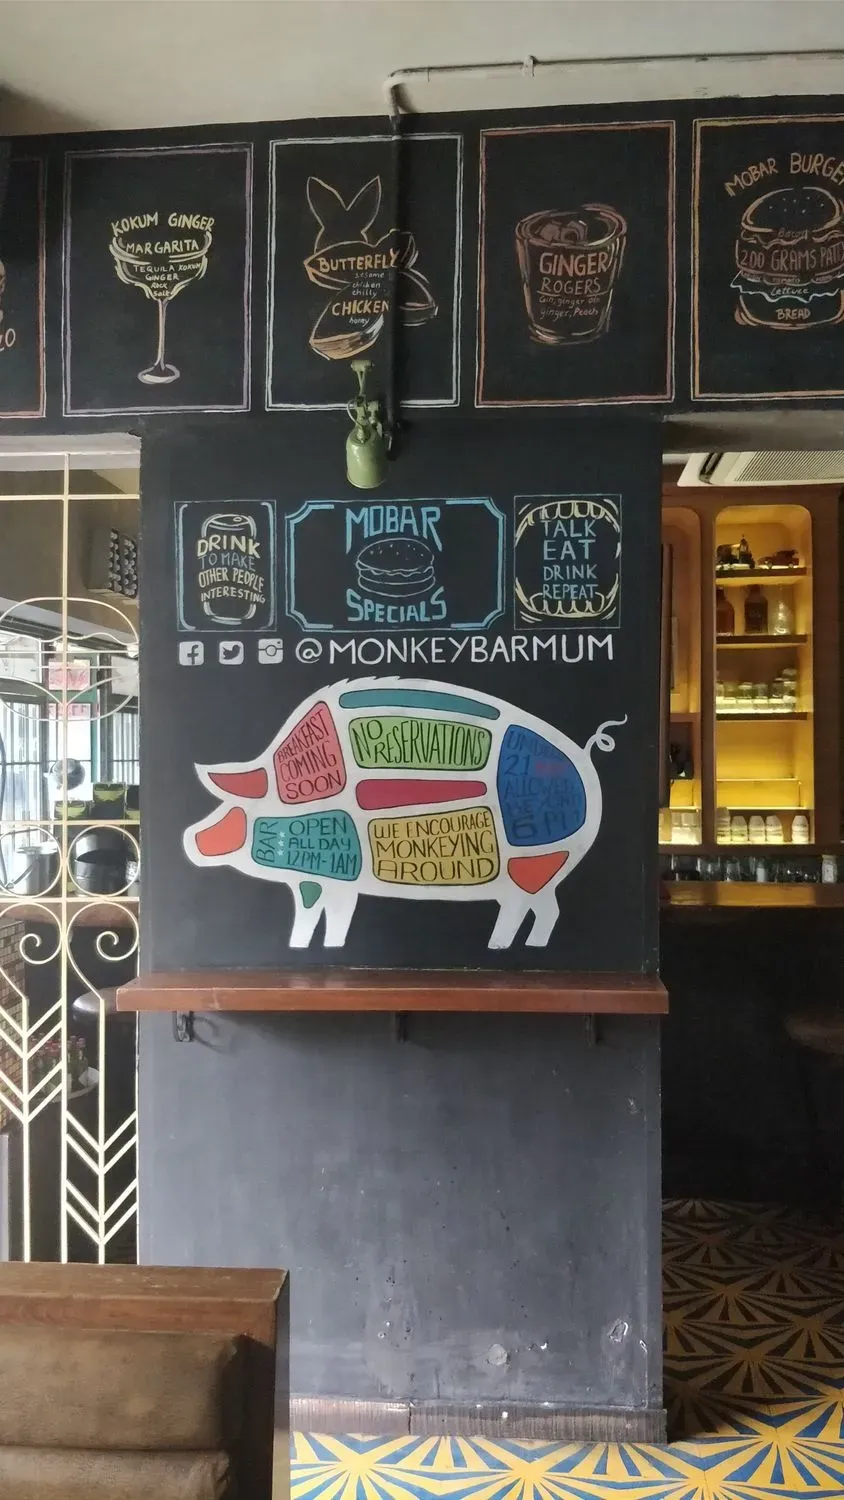 KOKUM GINGER
MARGARITA
TEQUILA KOKUM
GINGER
Rock
Salt
BUTTERFLY
sesame
chicken
chilly
CHICKEN
honey
GINGER
ROGERS
Gin, ginger ale
ginger, Peach
MOBAR BURGER
Bacon
200 GRAMS PATTY
tomato
Lettuce
BREAD
DRINK
TO MAKE
OTHER PEOPLE
INTERESTING
MOBAR
SPECIALS
TALK
EAT
DRINK
REPEAT
@MONKEYBARMUM
BREAKFAST
COMING
SOON
NO
RESERVATIONS
UNDER
21
ALLOWED
BEYOND
6 PM
BAR
OPEN
ALL DAY
12PM-1AM
WE ENCOURAGE
MONKEYING
AROUND